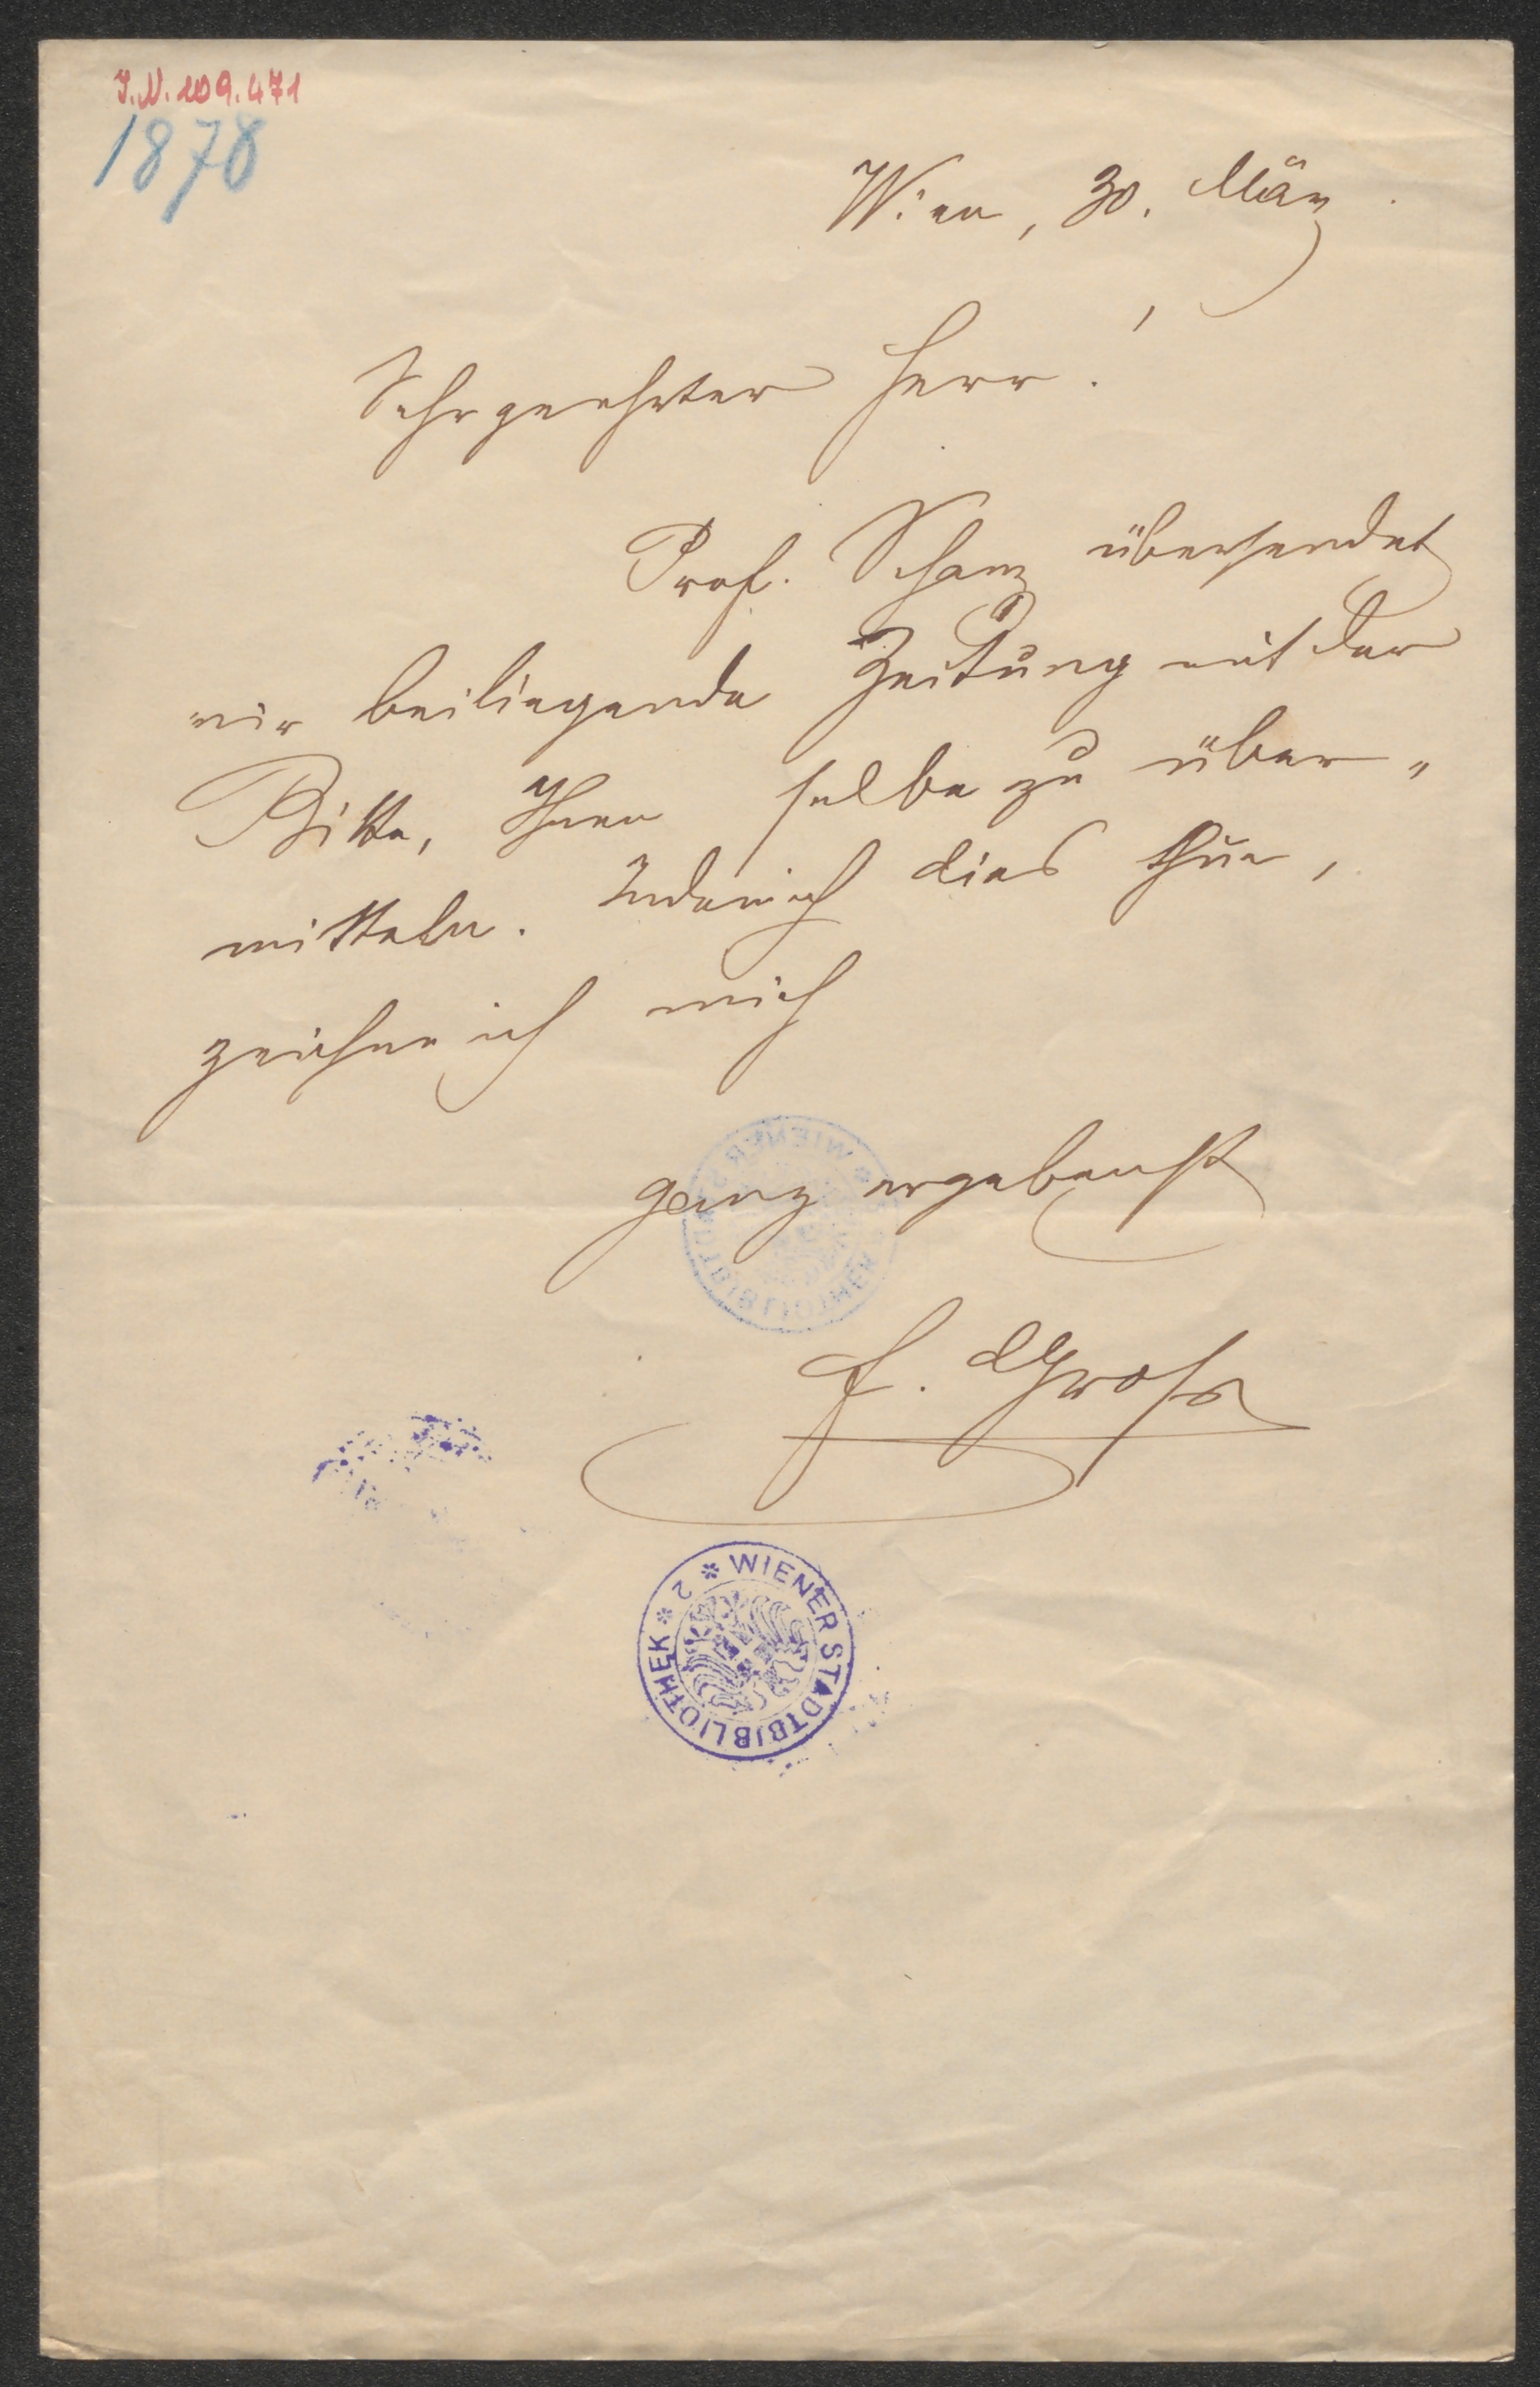 I.N. 109.471
1878
Wien, 30. März.
Sehr geehrter Herr!
Prof. Schanz übersendet
mir beiliegende Zeitung mit der
Bitte, Ihnen selbe zu über„
mitteln. Indem ich dies thue,
zeichne ich mich
ganz ergebenst
F. Gross
WIENER STADTBIBLIOTHEK
* WIENER STADTBIBLIOTHEK * 2